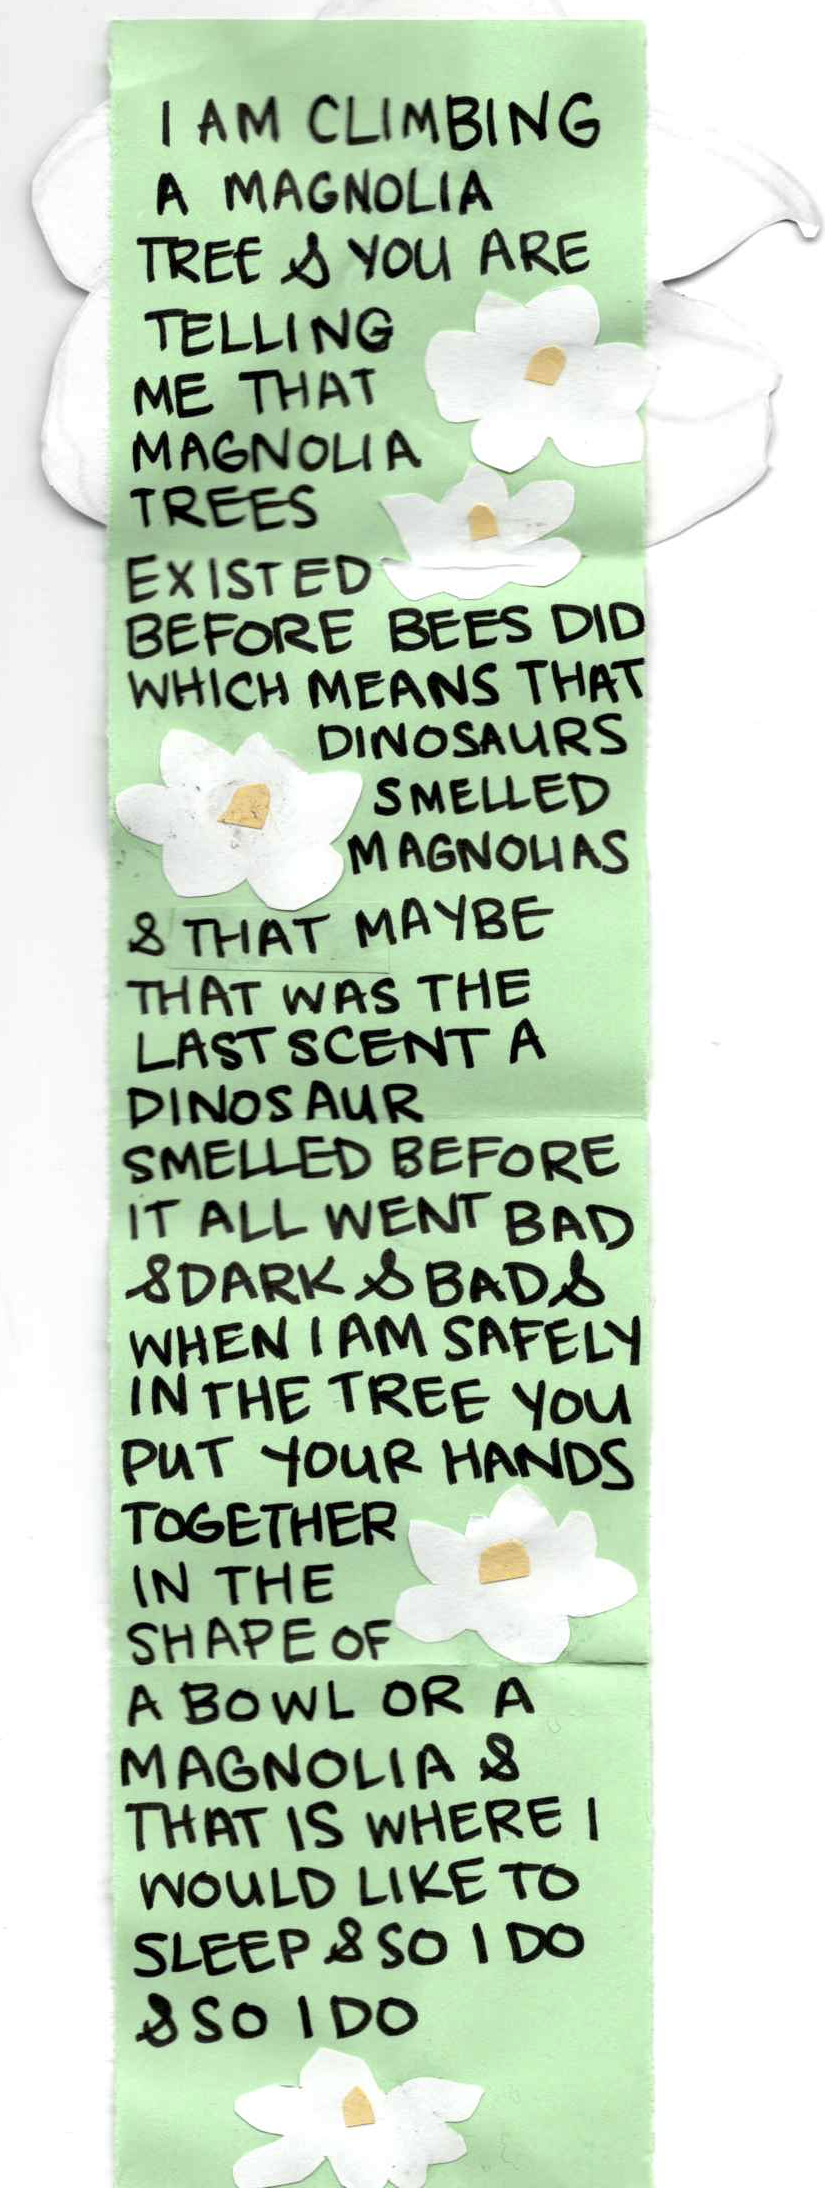 I AM CLIMBING
A MAGNOLIA
TREE & YOU ARE
TELLING
ME THAT
MAGNOLIA
TREES
EXISTED
BEFORE BEES DID
WHICH MEANS THAT
DINOSAURS
SMELLED
MAGNOLIAS
& THAT MAYBE
THAT WAS THE
LAST SCENT A
DINOSAUR
SMELLED BEFORE
IT ALL WENT BAD
& DARK & BAD &
WHEN I AM SAFELY
IN THE TREE YOU
PUT YOUR HANDS
TOGETHER
IN THE
SHAPE OF
A BOWL OR A
MAGNOLIA &
THAT IS WHERE I
WOULD LIKE TO
SLEEP & SO I DO
& SO I DO